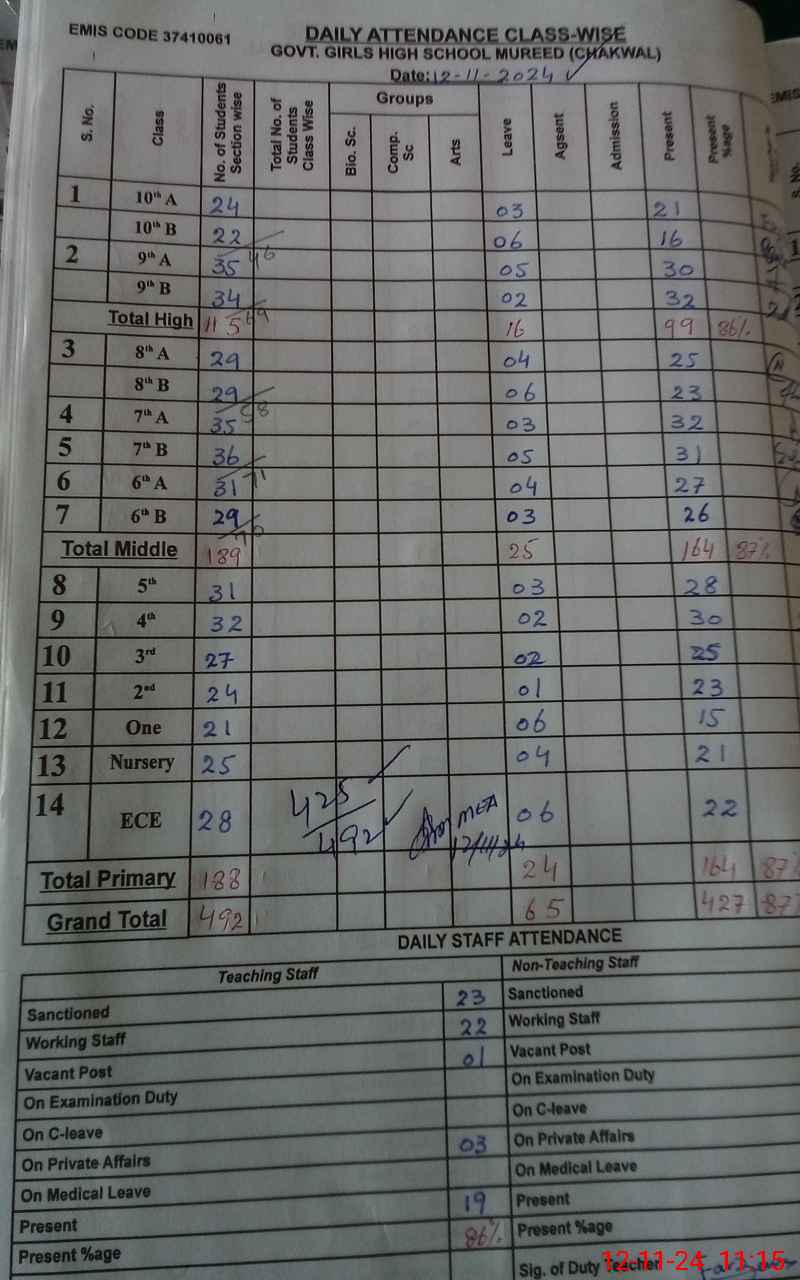 EMIS CODE 37410061
DAILY ATTENDANCE CLASS-WISE
GOVT. GIRLS HIGH SCHOOL MUREED (CHAKWAL)
Date: 12-11-2024
S. No. Class No. of Students Section wise Total No. of Students Class Wise Groups Bio. Sc. Comp. Sc Arts Leave Agsent Admission Present Present %age
1 10th A 24 03 21
10th B 22 46 06 16
2 9th A 35 05 30
9th B 34 69 02 32
Total High 115 16 99 86%
3 8th A 29 04 25
8th B 29 58 06 23
4 7th A 35 03 32
5 7th B 36 71 05 31
6 6th A 31 04 27
7 6th B 29 03 26
Total Middle 189 25 164 87%
8 5th 31 03 28
9 4th 32 02 30
10 3rd 27 02 25
11 2nd 24 01 23
12 One 21 06 15
13 Nursery 25 04 21
14 ECE 28 425 492 MEA 12/11/24 06 22
Total Primary 188 24 164 87%
Grand Total 492 65 427 87
DAILY STAFF ATTENDANCE
Teaching Staff Non-Teaching Staff
Sanctioned 23 Sanctioned
Working Staff 22 Working Staff
Vacant Post 01 Vacant Post
On Examination Duty On Examination Duty
On C-leave On C-leave
On Private Affairs 03 On Private Affairs
On Medical Leave On Medical Leave
Present 19 Present
Present %age 86% Present %age
Sig. of Duty Teacher
12-11-24 11:15